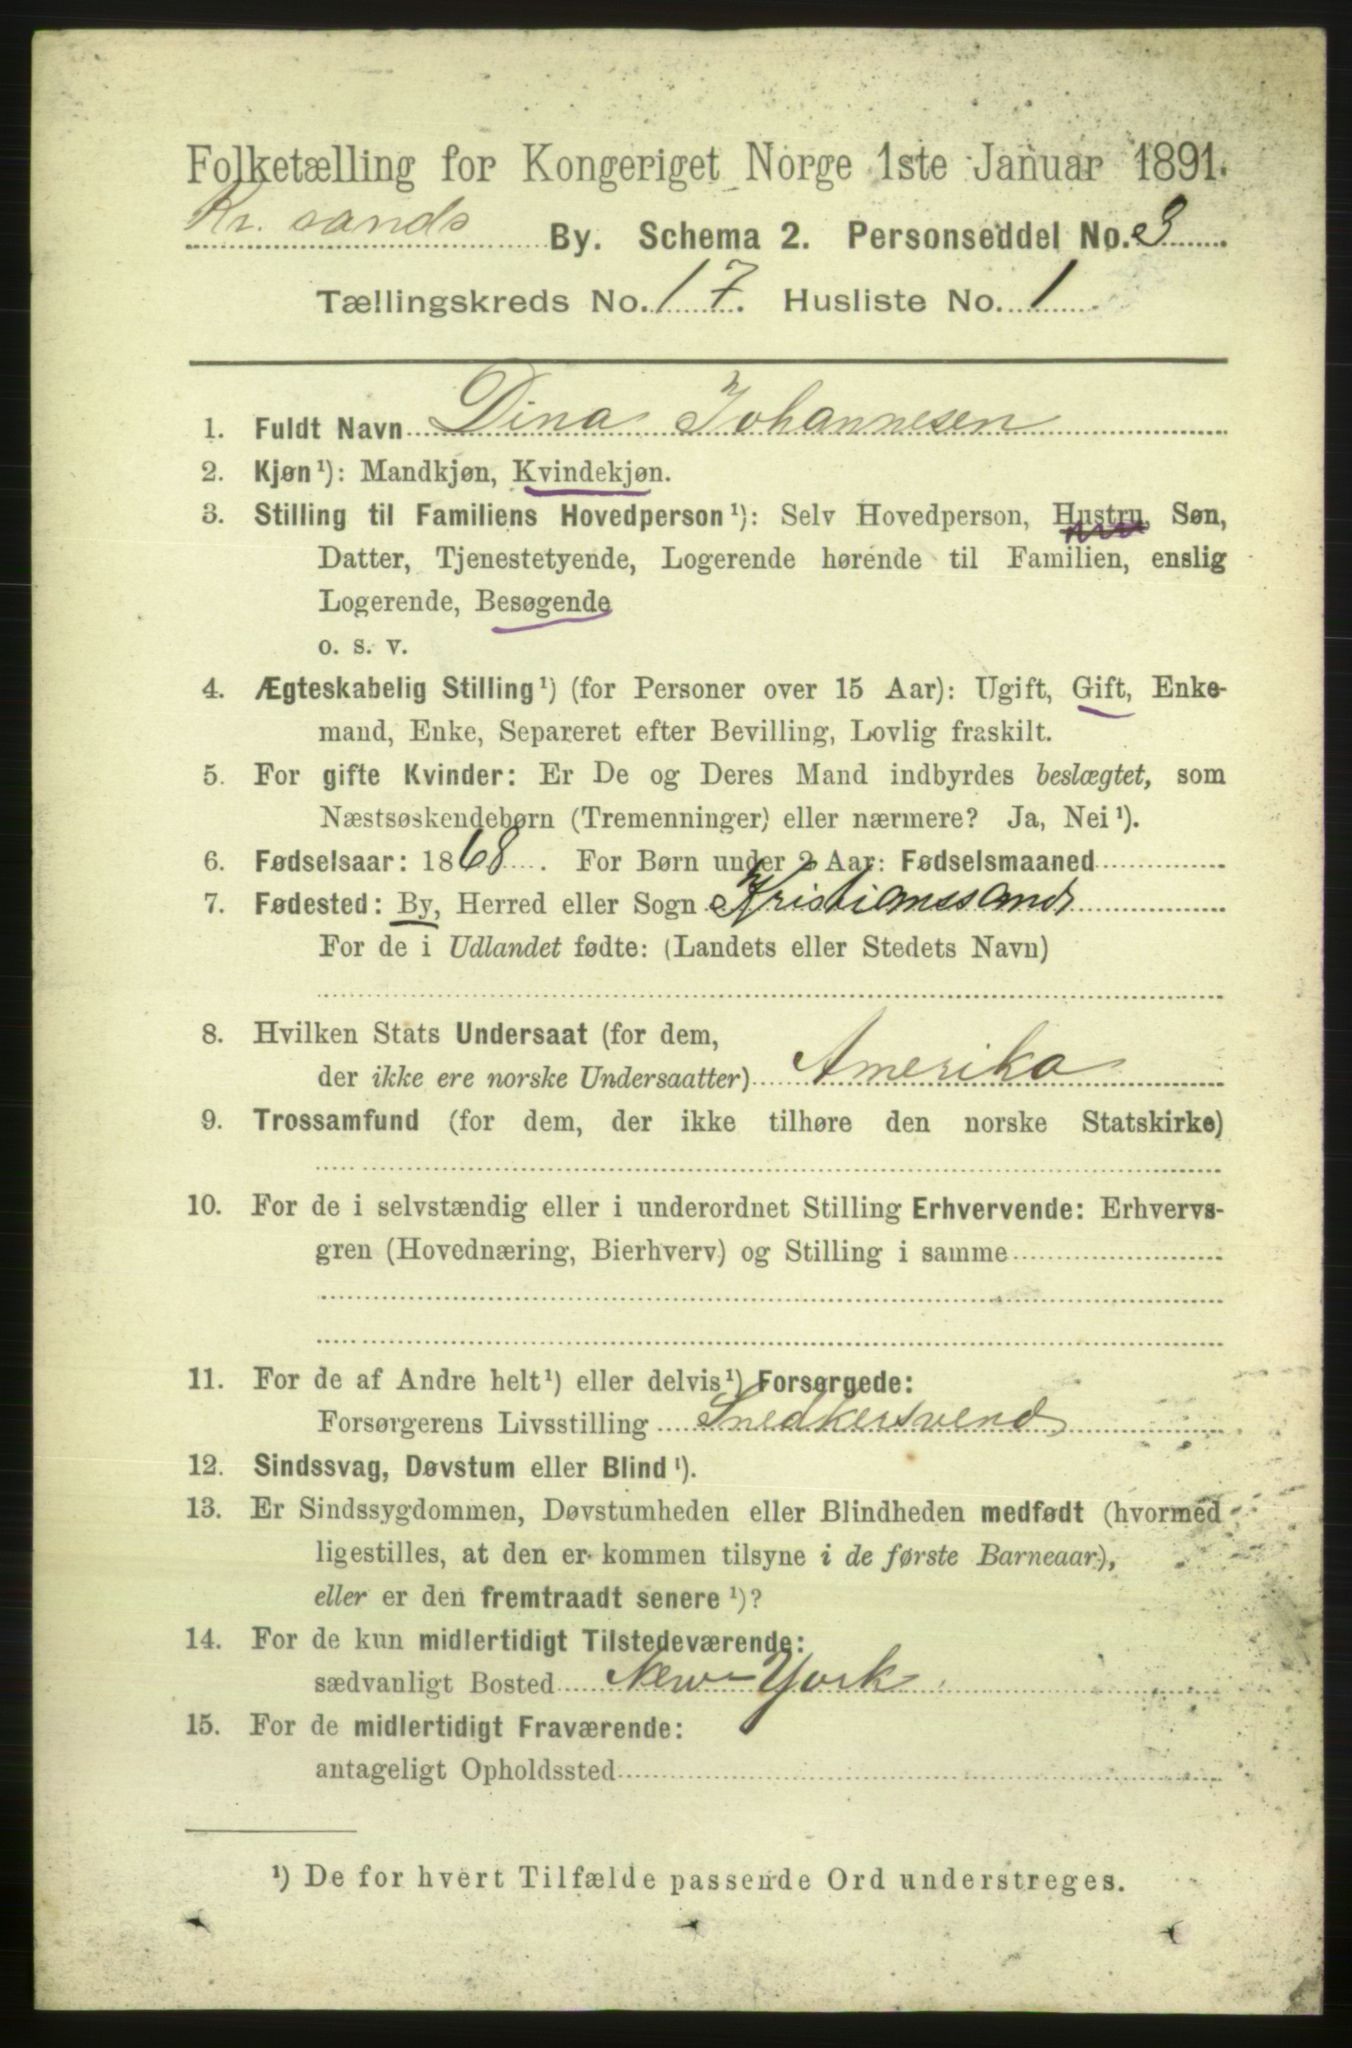 Folketælling for Kongeriget Norge 1ste Januar 1891.
Kr. sands By. Schema 2. Personseddel No. 3
Tællingskreds No. 17. Husliste No. 1
1. Fuldt Navn Dina Johannesen
2. Kjøn¹): Mandkjøn, Kvindekjøn.
3. Stilling til Familiens Hovedperson¹): Selv Hovedperson, Hustru, Søn,
Datter, Tjenestetyende, Logerende hørende til Familien, enslig
Logerende, Besøgende
o. s. v.
4. Ægteskabelig Stilling¹) (for Personer over 15 Aar): Ugift, Gift, Enke-
mand, Enke, Separeret efter Bevilling, Lovlig fraskilt.
5. For gifte Kvinder: Er De og Deres Mand indbyrdes beslægtet, som
Næstsøskendebørn (Tremenninger) eller nærmere? Ja, Nei¹).
6. Fødselsaar: 1868. For Børn under 2 Aar: Fødselsmaaned
7. Fødested: By, Herred eller Sogn Kristianssand
For de i Udlandet fødte: (Landets eller Stedets Navn)
8. Hvilken Stats Undersaat (for dem,
der ikke ere norske Undersaatter) Amerika
9. Trossamfund (for dem, der ikke tilhøre den norske Statskirke)
10. For de i selvstændig eller i underordnet Stilling Erhvervende: Erhvervs-
gren (Hovednæring, Bierhverv) og Stilling i samme
11. For de af Andre helt¹) eller delvis¹) Forsørgede:
Forsørgerens Livsstilling Snedkersvend
12. Sindssvag, Døvstum eller Blind¹).
13. Er Sindssygdommen, Døvstumheden eller Blindheden medfødt (hvormed
ligestilles, at den er kommen tilsyne i de første Barneaar),
eller er den fremtraadt senere¹)?
14. For de kun midlertidigt Tilstedeværende:
sædvanligt Bosted New-York
15. For de midlertidigt Fraværende:
antageligt Opholdssted
¹) De for hvert Tilfælde passende Ord understreges.